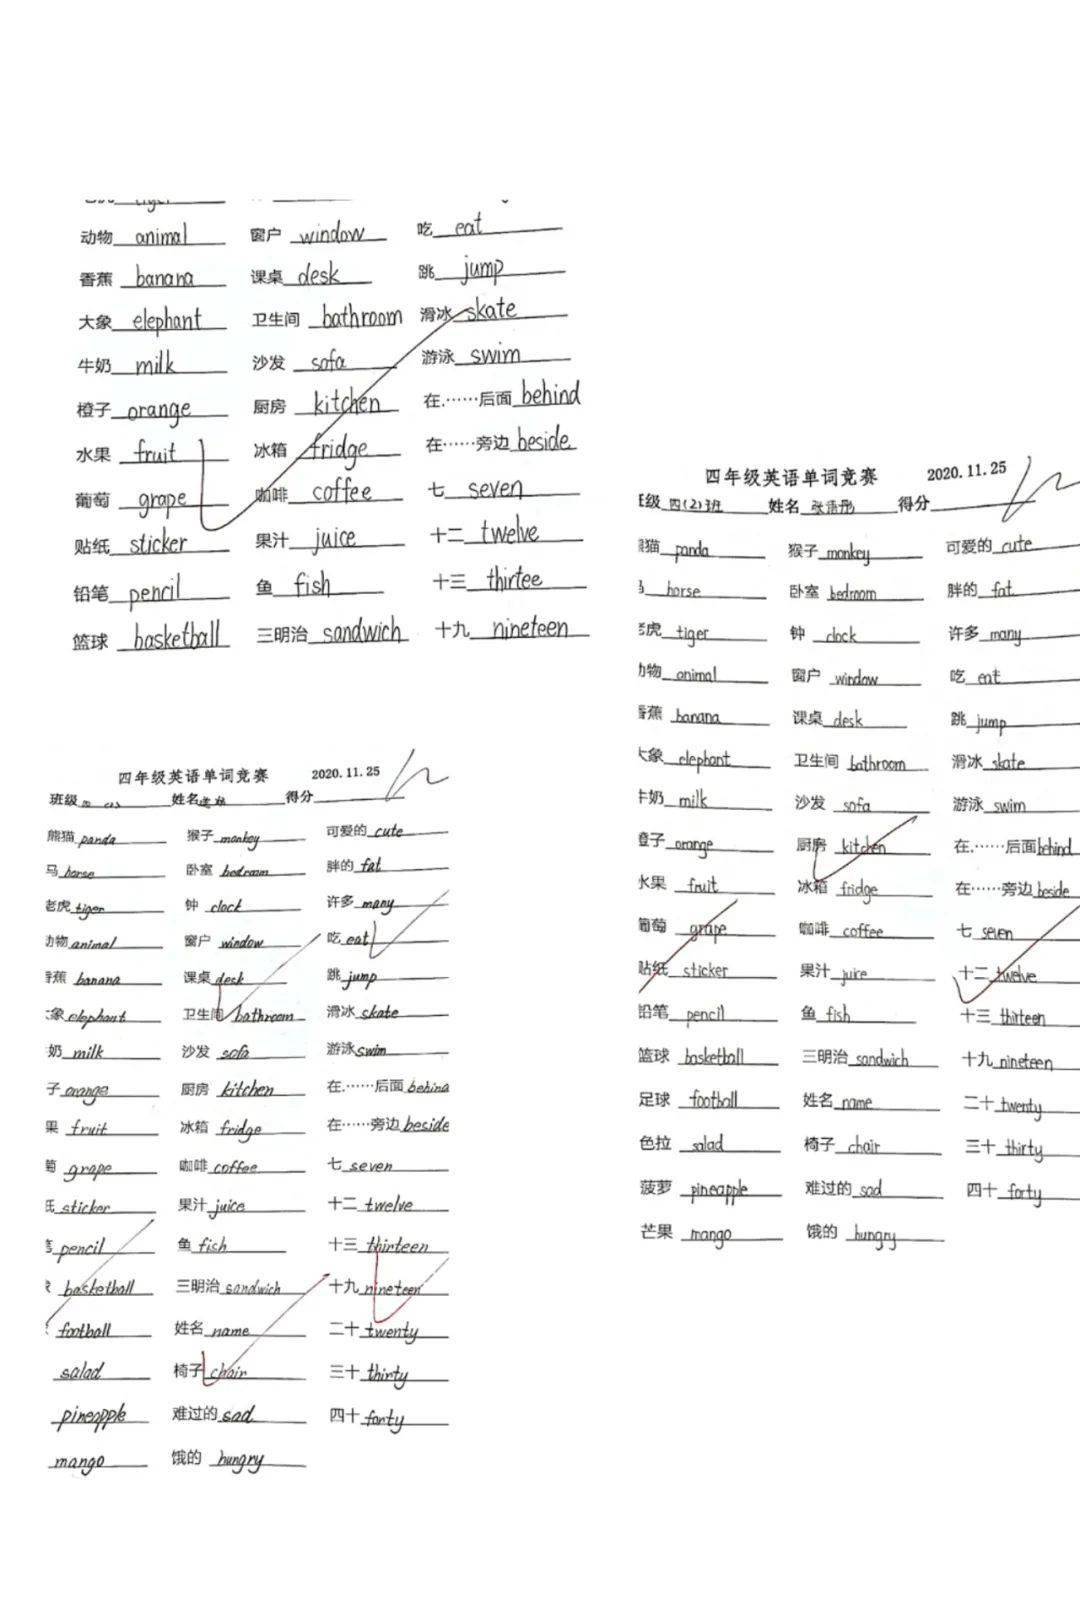 动物 animal 窗户 window 吃 eat
香蕉 banana 课桌 desk 跳 jump
大象 elephant 卫生间 bathroom 滑冰 skate
牛奶 milk 沙发 sofa 游泳 swim
橙子 orange 厨房 kitchen 在……后面 behind
水果 fruit 冰箱 fridge 在……旁边 beside
葡萄 grape 咖啡 coffee 七 seven
贴纸 sticker 果汁 juice 十二 twelve
铅笔 pencil 鱼 fish 十三 thirtee
篮球 basketball 三明治 sandwich 十九 nineteen
四年级英语单词竞赛 2020.11.25
班级 姓名 得分
熊猫 panda 猴子 monkey 可爱的 cute
马 horse 卧室 bedroom 胖的 fat
老虎 tiger 钟 clock 许多 many
动物 animal 窗户 window 吃 eat
香蕉 banana 课桌 desk 跳 jump
象 elephant 卫生间 bathroom 滑冰 skate
奶 milk 沙发 sofa 游泳 swim
子 orange 厨房 kitchen 在……后面 behind
果 fruit 冰箱 fridge 在……旁边 beside
萄 grape 咖啡 coffee 七 seven
纸 sticker 果汁 juice 十二 twelve
pencil 鱼 fish 十三 thirteen
basketball 三明治 sandwich 十九 nineteen
football 姓名 name 二十 twenty
salad 椅子 chair 三十 thirty
pineapple 难过的 sad 四十 forty
mango 饿的 hungry
四年级英语单词竞赛 2020.11.25
班级 四(2)班 姓名 得分
熊猫 panda 猴子 monkey 可爱的 cute
horse 卧室 bedroom 胖的 fat
老虎 tiger 钟 clock 许多 many
动物 animal 窗户 window 吃 eat
香蕉 banana 课桌 desk 跳 jump
大象 elephant 卫生间 bathroom 滑冰 skate
牛奶 milk 沙发 sofa 游泳 swim
橙子 orange 厨房 kitchen 在……后面 behind
水果 fruit 冰箱 fridge 在……旁边 beside
葡萄 grape 咖啡 coffee 七 seven
贴纸 sticker 果汁 juice 十二 twelve
铅笔 pencil 鱼 fish 十三 thirteen
篮球 basketball 三明治 sandwich 十九 nineteen
足球 football 姓名 name 二十 twenty
色拉 salad 椅子 chair 三十 thirty
菠萝 pineapple 难过的 sad 四十 forty
芒果 mango 饿的 hungry